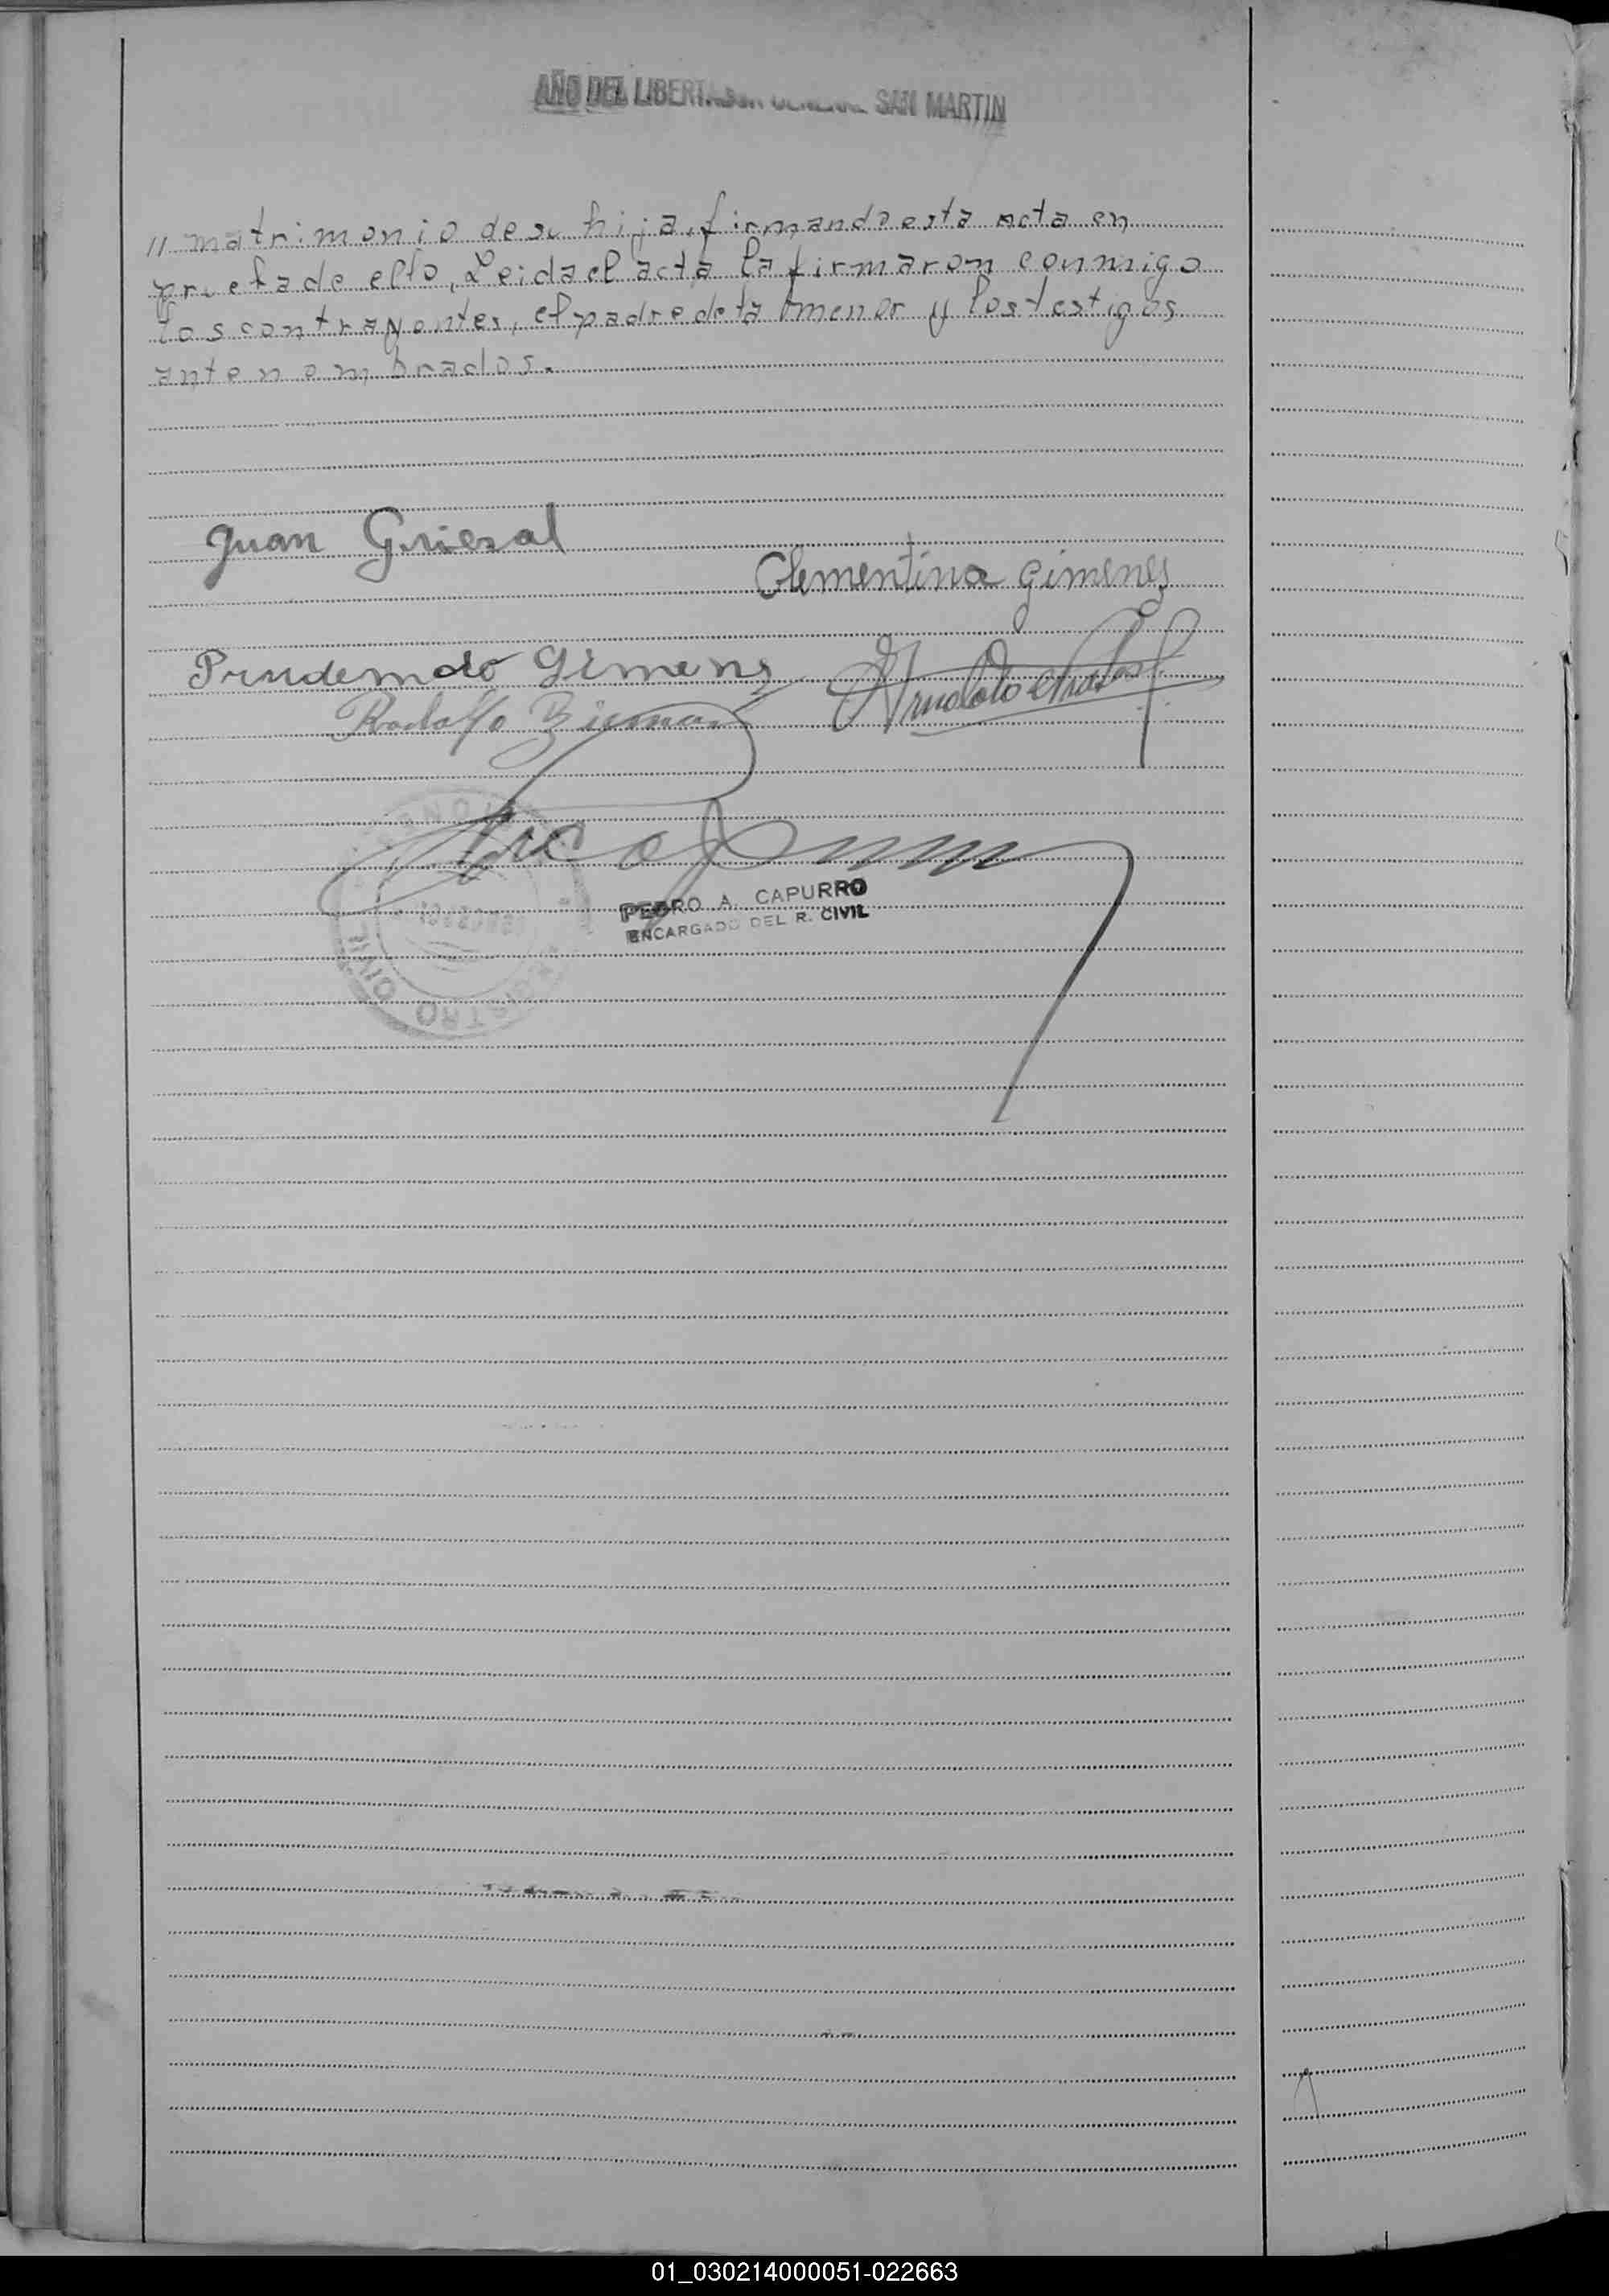 AÑO DEL LIBERTADOR GENERAL SAN MARTIN
// matrimonio de su hija, firmando esta acta en
prueba de ello, Leida el acta la firmaron conmigo
los contrayentes, el padre de la menor y los testigos
antenombrados.
Juan Griesal
Clementina Gimenez
Prudemcio Gimenz
Rodolfo
PEDRO A. CAPURRO
ENCARGADO DEL R. CIVIL
REGISTRO CIVIL
01_030214000051-022663